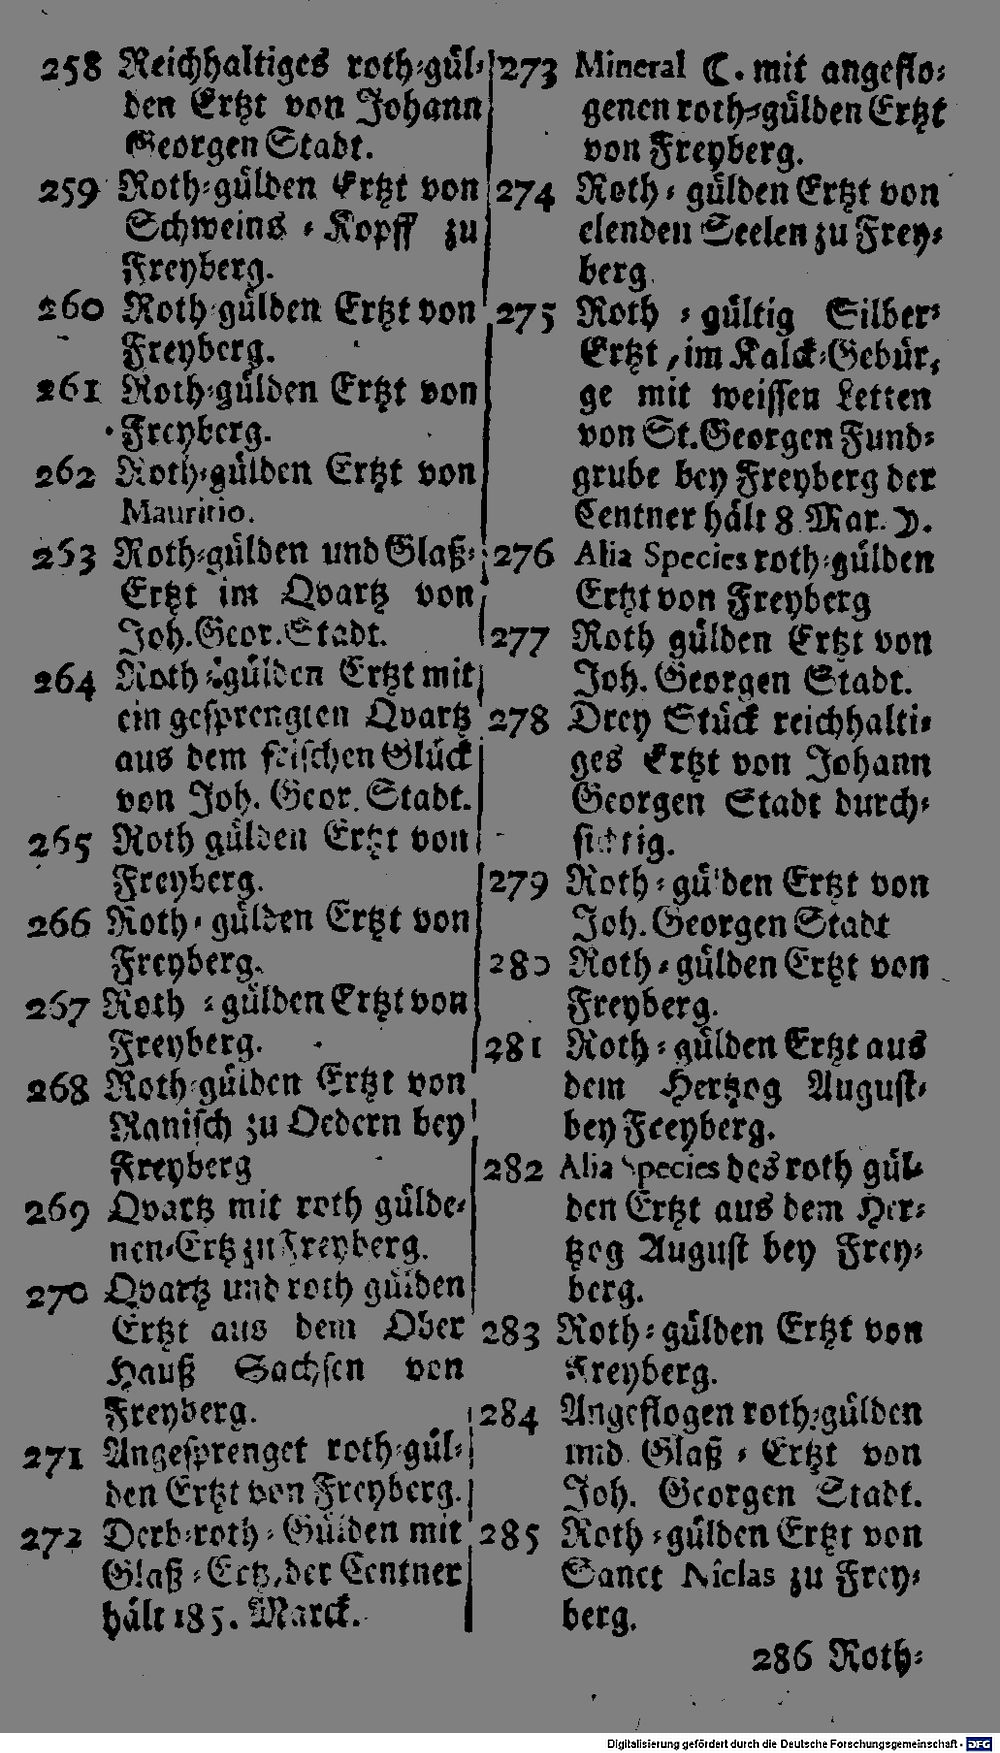 258 Reichhaltiges roth⸗gül⸗
den Ertzt von Johann
Georgen Stadt.
259 Roth⸗gülden Ertzt von
Schweins ⸗ Kopff zu
Freyberg.
260 Roth⸗gülden Ertzt von
Freyberg.
261 Roth⸗gülden Ertzt von
Freyberg.
262 Roth⸗gülden Ertzt von
Mauritio.
263 Roth⸗gülden und Glaß⸗
Ertzt im Qvartz von
Joh. Geor. Stadt.
264 Roth⸗gülden Ertzt mit
ein gesprengten Qvartz
aus dem frischen Glück
von Joh. Geor. Stadt.
265 Roth gülden Ertzt von
Freyberg.
266 Roth⸗gülden Ertzt von
Freyberg.
267 Roth ⸗ gülden Ertzt von
Freyberg.
268 Roth⸗gülden Ertzt von
Ranisch zu Oedern bey
Freyberg
269 Qvartz mit roth gülde⸗
nen⸗Ertz zu Freyberg.
270 Qvartz und roth gülden
Ertzt aus dem Ober
Hauß Sachsen von
Freyberg.
271 Angesprenget roth⸗gül⸗
den Ertzt von Freyberg.
272 Derb⸗roth⸗Gülden mit
Glaß⸗Ertz, der Centner
hält 185. Marck.
273 Mineral ☾. mit angeflo⸗
genen roth⸗gülden Ertzt
von Freyberg.
274 Roth ⸗ gülden Ertzt von
elenden Seelen zu Frey⸗
berg.
275 Roth ⸗ gültig Silber⸗
Ertzt, im Kalck⸗Gebür⸗
ge mit weissen Letten
von St. Georgen Fund⸗
grube bey Freyberg der
Centner hält 8 Mar. ☽.
276 Alia Species roth⸗gülden
Ertzt von Freyberg
277 Roth gülden Ertzt von
Joh. Georgen Stadt.
278 Drey Stück reichhalti⸗
ges Ertzt von Johann
Georgen Stadt durch⸗
sichtig.
279 Roth ⸗ gülden Ertzt von
Joh. Georgen Stadt
280 Roth ⸗ gülden Ertzt von
Freyberg.
281 Roth ⸗ gülden Ertzt aus
dem Hertzog August⸗
bey Freyberg.
282 Alia Species des roth gül⸗
den Ertzt aus dem Her⸗
tzog August bey Frey⸗
berg.
283 Roth ⸗ gülden Ertzt von
Freyberg.
284 Angeflogen roth⸗gülden
und Glaß ⸗ Ertzt von
Joh. Georgen Stadt.
285 Roth ⸗ gülden Ertzt von
Sanct Niclas zu Frey⸗
berg.
286 Roth⸗
Digitalisierung gefördert durch die Deutsche Forschungsgemeinschaft - DFG